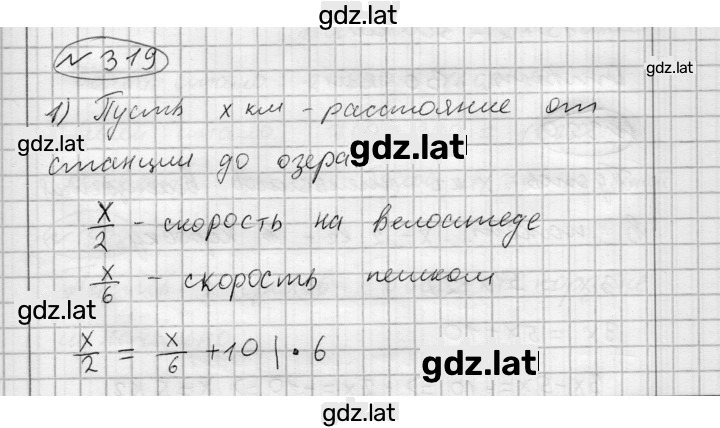 gdz.lat
№ 319
gdz.lat
1) Пусть x км - расстояние от
gdz.lat
gdz.lat
станции до озера
x/2 - скорость на велосипеде
x/6 - скорость пешком
gdz.lat
x/2 = x/6 + 10 | • 6
gdz.lat
gdz.lat